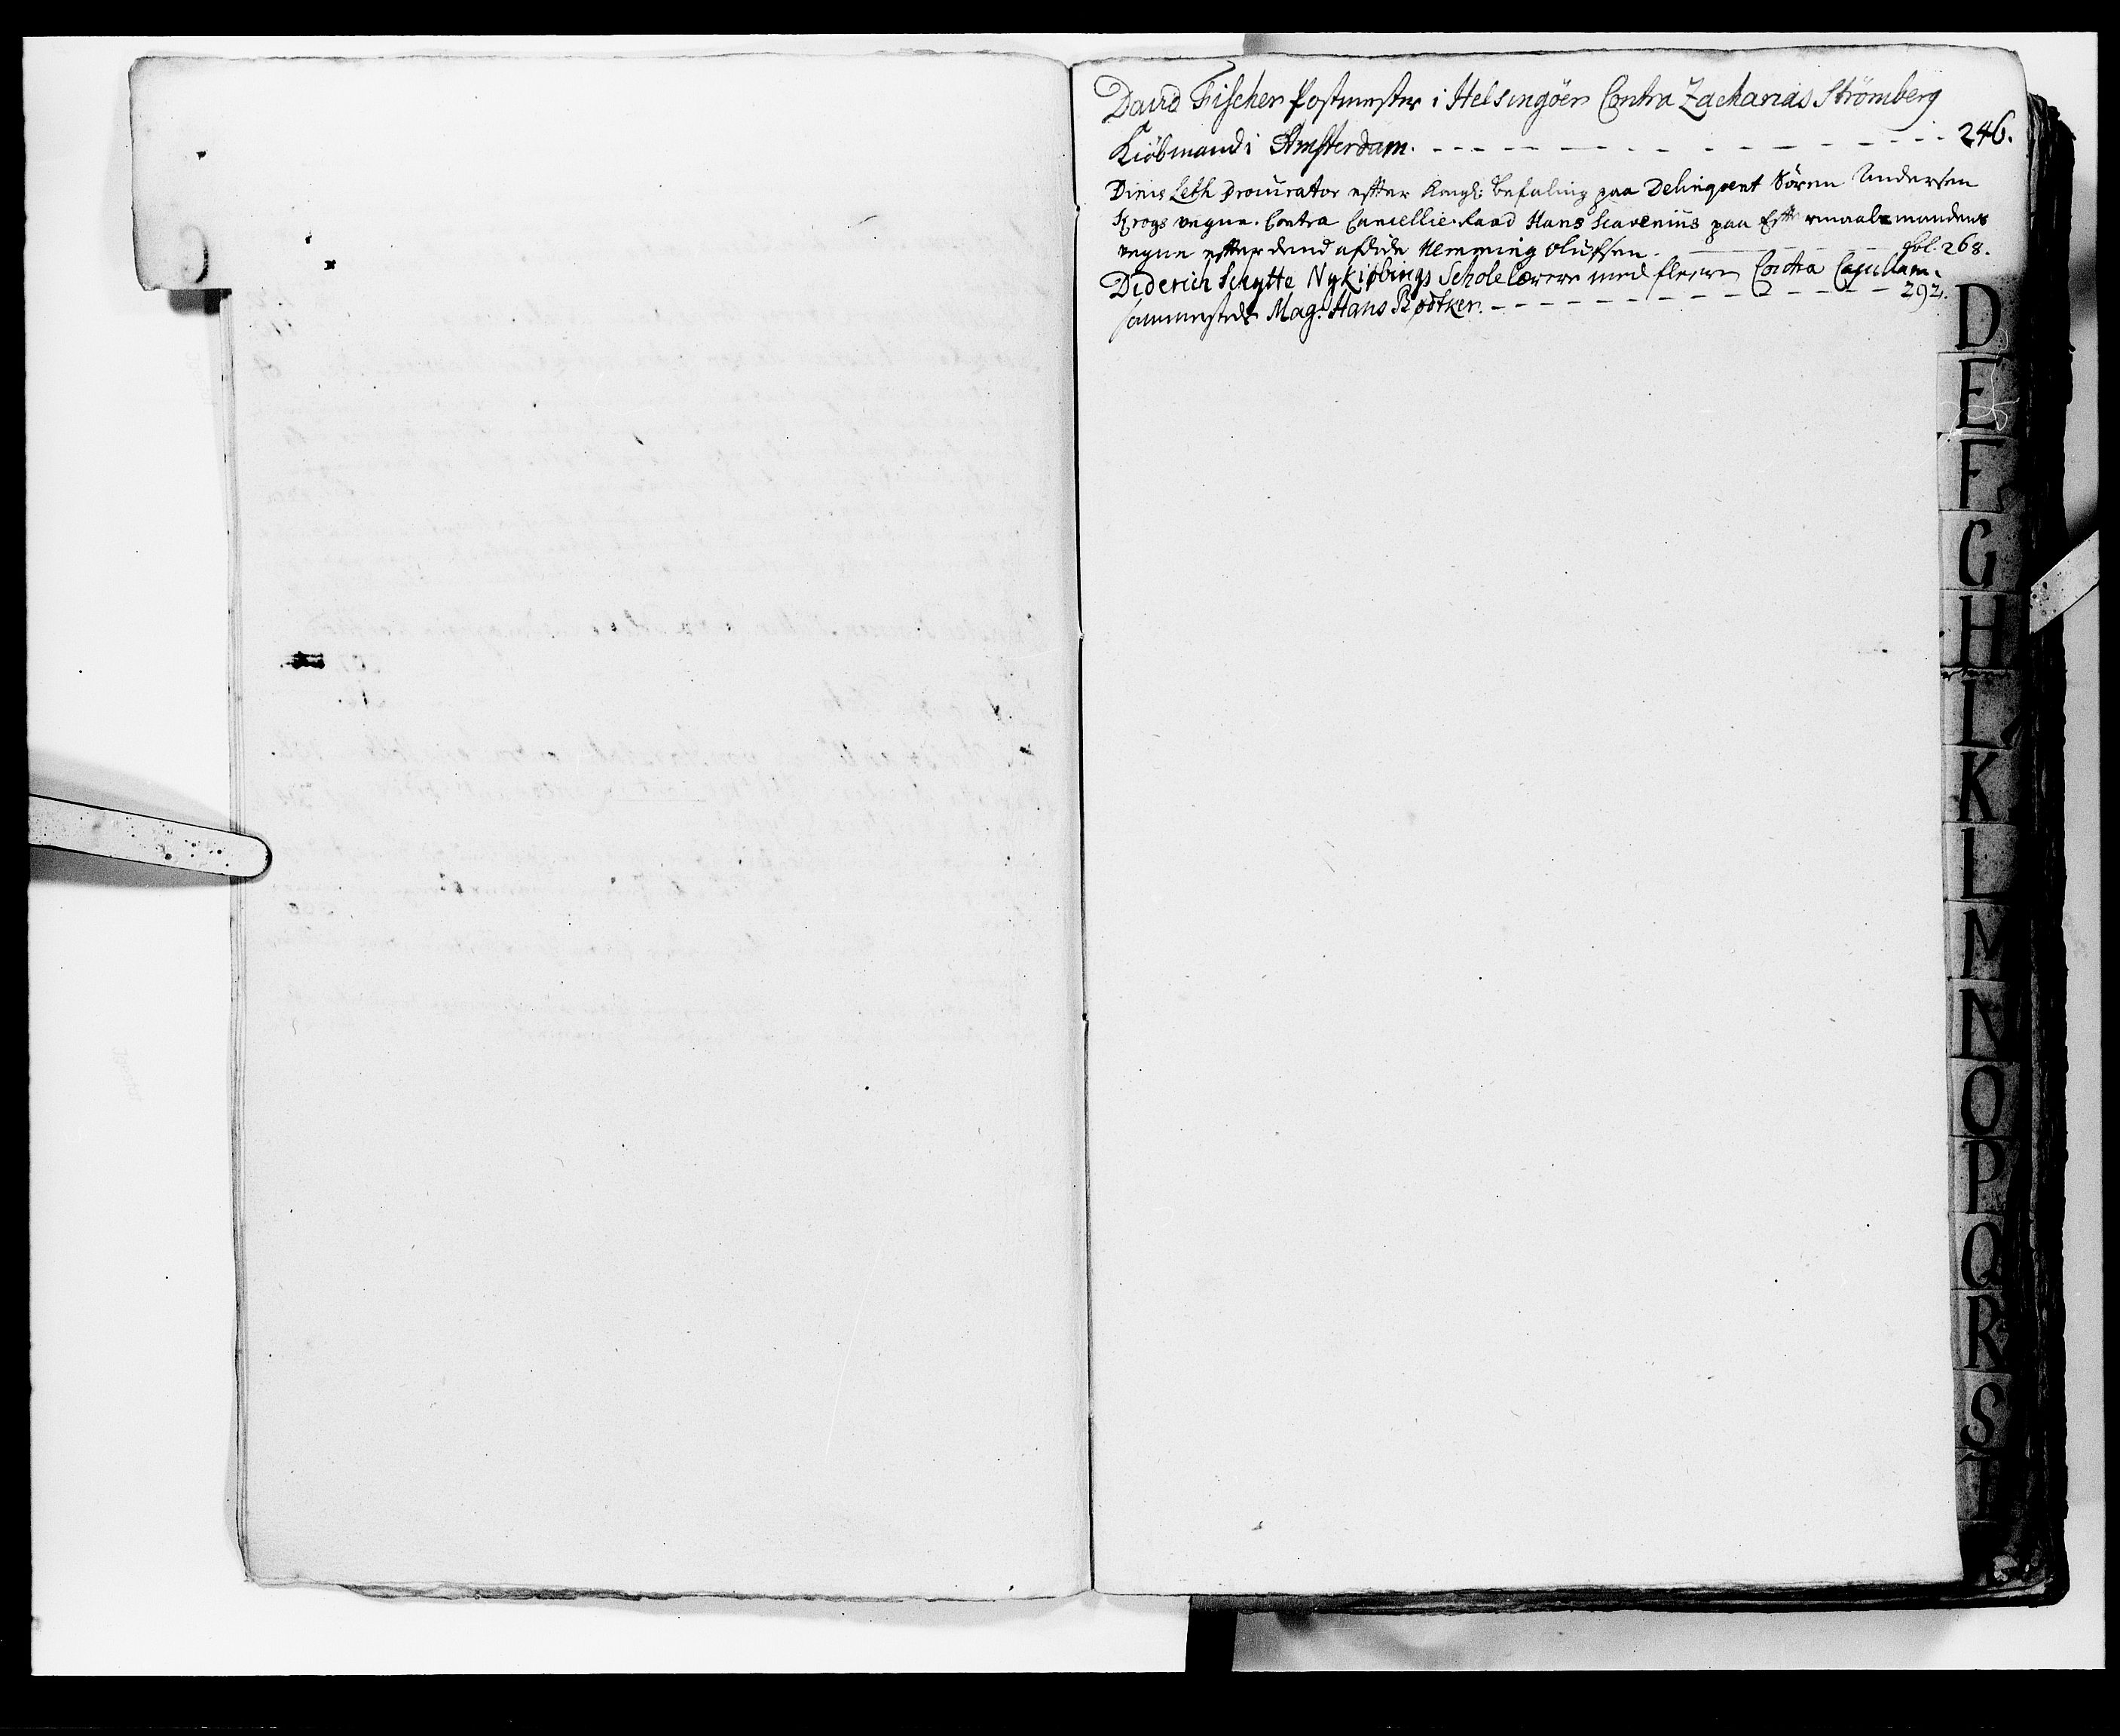 David Fischer Postmester i Helsingöer Contra Zacharias Strömberg
Kiöbmand i Amsterdam. - - - - - - - - - - - - 246.
Dinis Leth Procurator efter Kongl: befaling paa Delinqvent Sören Andersen
Krogs vegne. Contra Cancellie-Raad Hans Scavenius paa Eftermaalsmandens
vegne efter dend afdöde Hemming Olüfsen. fol. 268.
Diderich Schytte Nykiöbings Scholelærere med fleere Contra Capellan.
sammesteds Mag: Hans Bödtker. - - - - - - - - 292.
D
E
F
G
H
I
K
L
M
N
O
P
Q
R
S
T